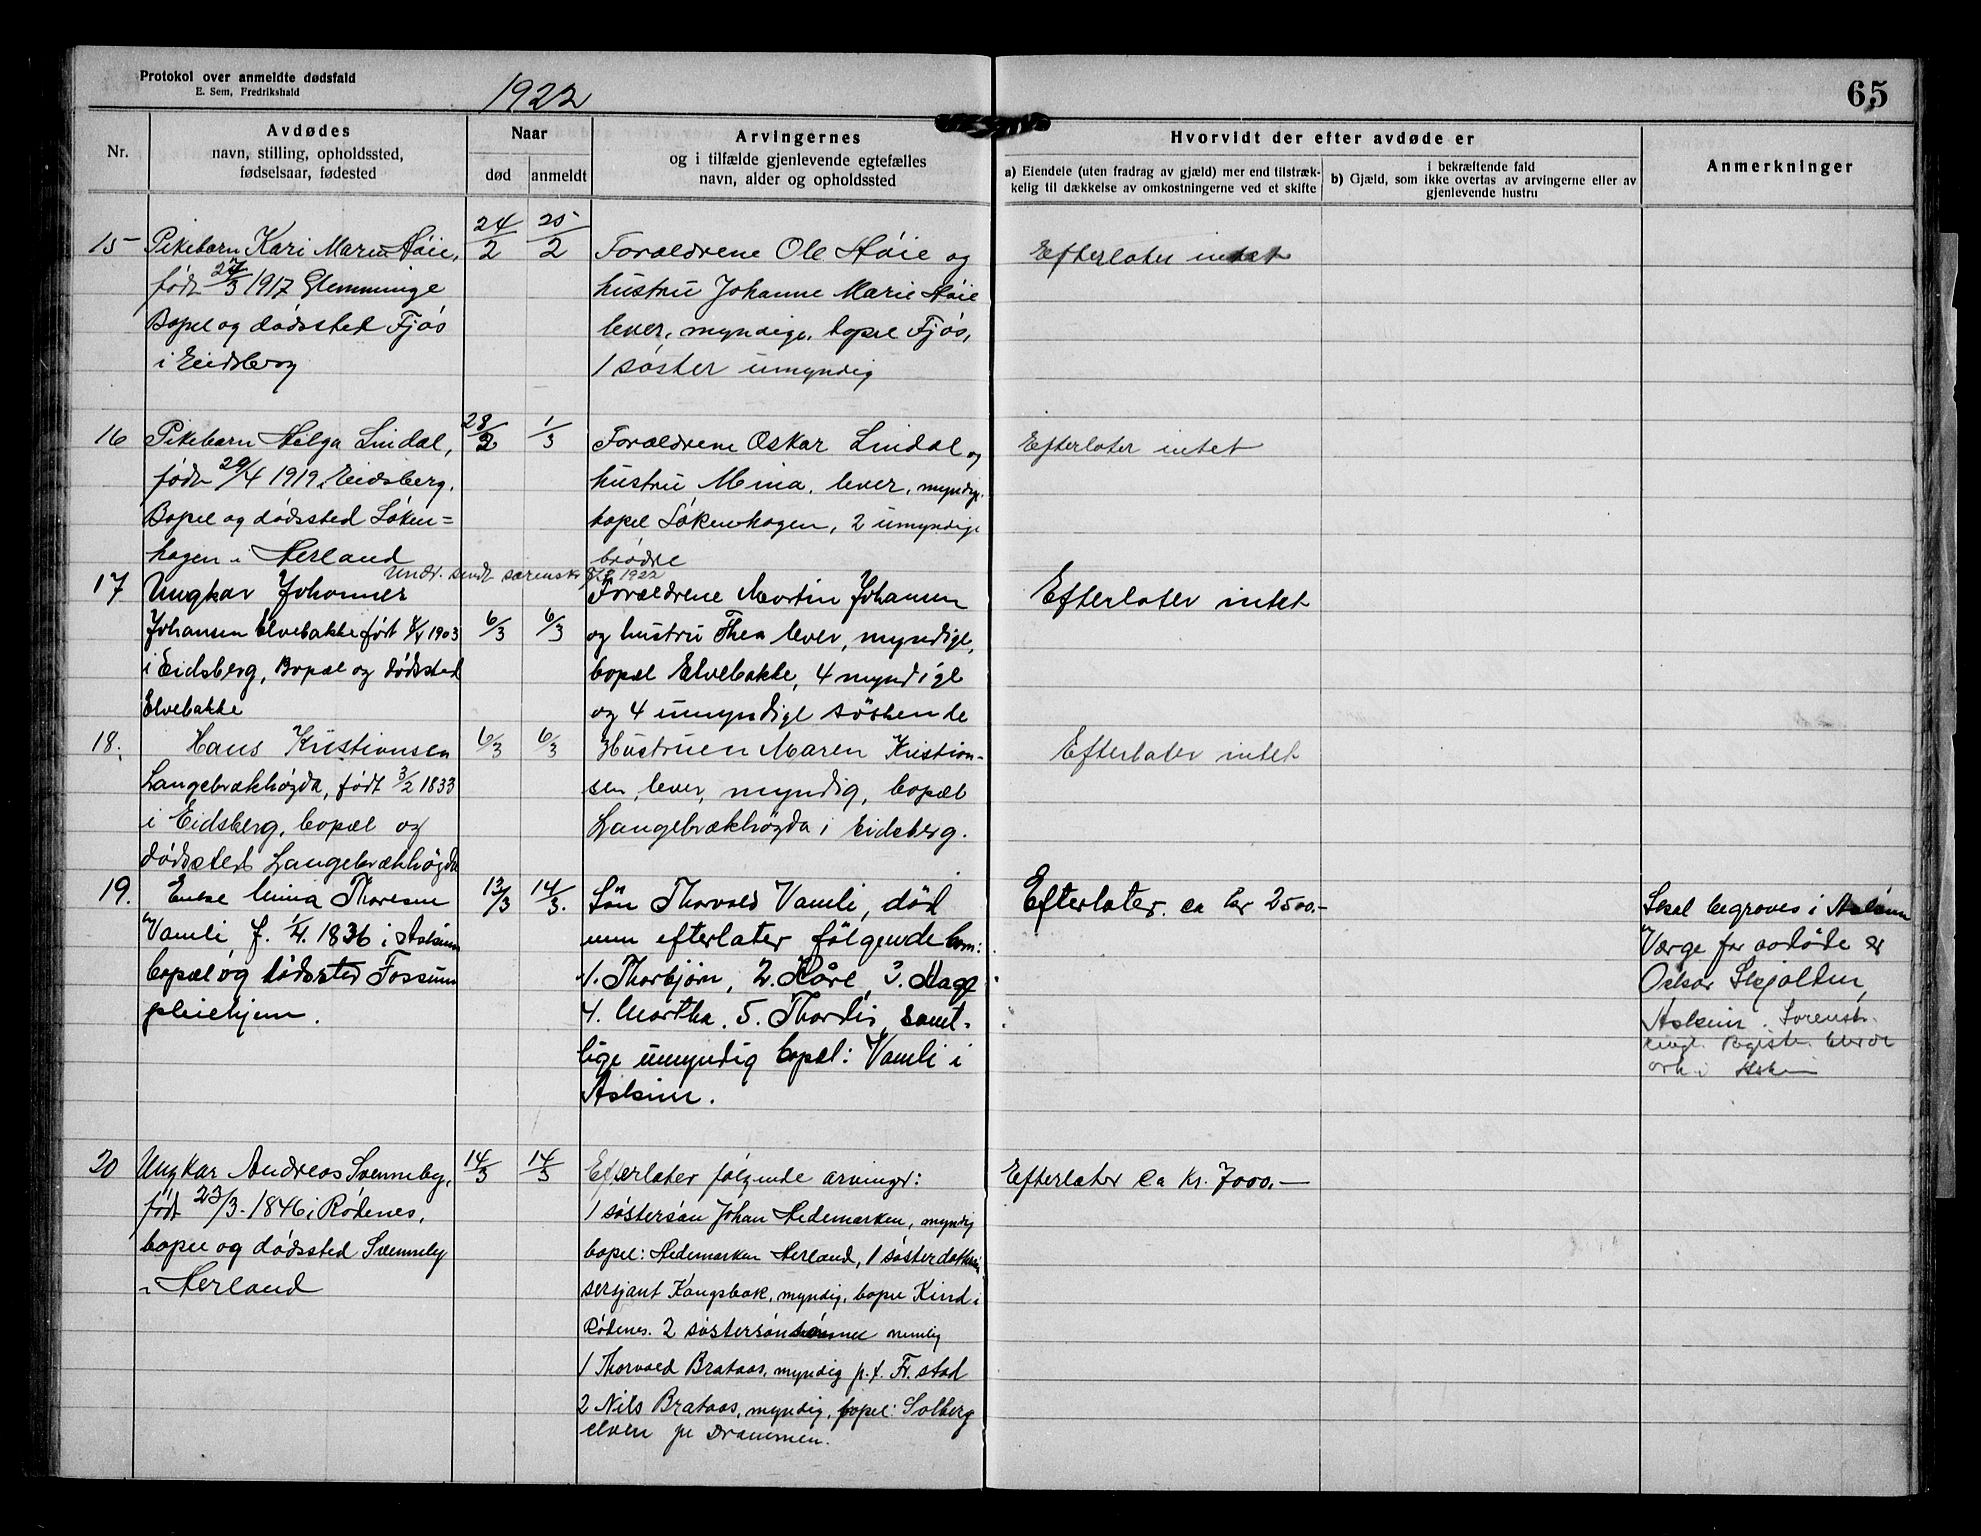 Protokol over anmeldte dødsfald
E. Sem, Fredrikshald
1922
65
Nr.
Avdødes
navn, stilling, opholdssted,
fødselsaar, fødested
Naar
død
anmeldt
Arvingernes
og i tilfælde gjenlevende egtefælles
navn, alder og opholdssted
Hvorvidt der efter avdøde er
a) Eiendele (uten fradrag av gjæld) mer end tilstræk-
kelig til dækkelse av omkostningerne ved et skifte
i bekræftende fald
b) Gjæld, som ikke overtas av arvingerne eller av
gjenlevende hustru
Anmerkninger
15
Pikebarn Kari Marie Høie,
født 27/3 1917 Glemminge
Bopel og dødssted Fjøs
i Eidsberg
24/2
25/2
Forældrene Ole Høie og
hustru Johanne Marie Høie
lever, myndige, bopel Fjøs,
1 søster umyndig
Efterlater intet
16
Pikebarn Helga Lindal,
født 20/4 1919, Eidsberg.
Bopel og dødssted Løken=
hagen i Herland
28/2
1/3
Forældrene Oskar Lindal og
hustru Mina, lever, myndige,
bopel Løkenhagen, 2 umyndige
brødre
Efterlater intet
Undr. sendt sorenskr 1922
17
Ungkar Johannes
Johansen Elvebakke født 1903
i Eidsberg, Bopæl og dødssted
Elvebakke
6/3
6/3
Forældrene Martin Johansen
og hustru Thea lever, myndige,
bopæl Elvebakke, 4 myndige
og 4 umyndige søskende
Efterlater intet
18.
Hans Kristiansen
Langebrækhøgda, født 3/2 1833
i Eidsberg, bopæl og
dødssted Langebrækhøgda
6/3
6/3
Hustruen Maren Kristian-
sen, lever, myndig, bopæl
Langebrækhøgda i Eidsberg.
Efterlater intet
19.
Enke Mina Thoresen
Vamli f. 1/4. 1836 i Askim
bopæl og dødssted Fossum
pleiehjem.
13/3
14/3.
Søn Thorvald Vamli, død
men efterlater følgende barn:
1. Thorbjørn, 2. Kåre, 3. Aage
4. Martha, 5. Thordis, samt-
lige umyndig bopæl: Vamli i
Askim.
Efterlater ca kr 2500.-
Skal begraves i Askim
Værge for avdøde er
Oskar Skjolden,
Askim. Sorenskr.
i Askim
20
Ungkar Andreas Svenneby,
født 23/3. 1846 i Rødenes,
bopel og dødssted Svenneby
i Herland
14/3
14/3
Efterlater følgende arvinger:
1 søstersøn Johan Hedemarken, myndig
bopel: Hedemarken Herland, 1 søsterdatter
sersjant Kongsbak, myndig, bopel Kind i
Rødenes. 2 søstersønsønner nemlig
1 Thorvald Brataas, myndig p.t. Fr. stad
2 Nils Brataas, myndig, bopel: Solberg
elven pr Drammen.
Efterlater ca kr. 7000.-